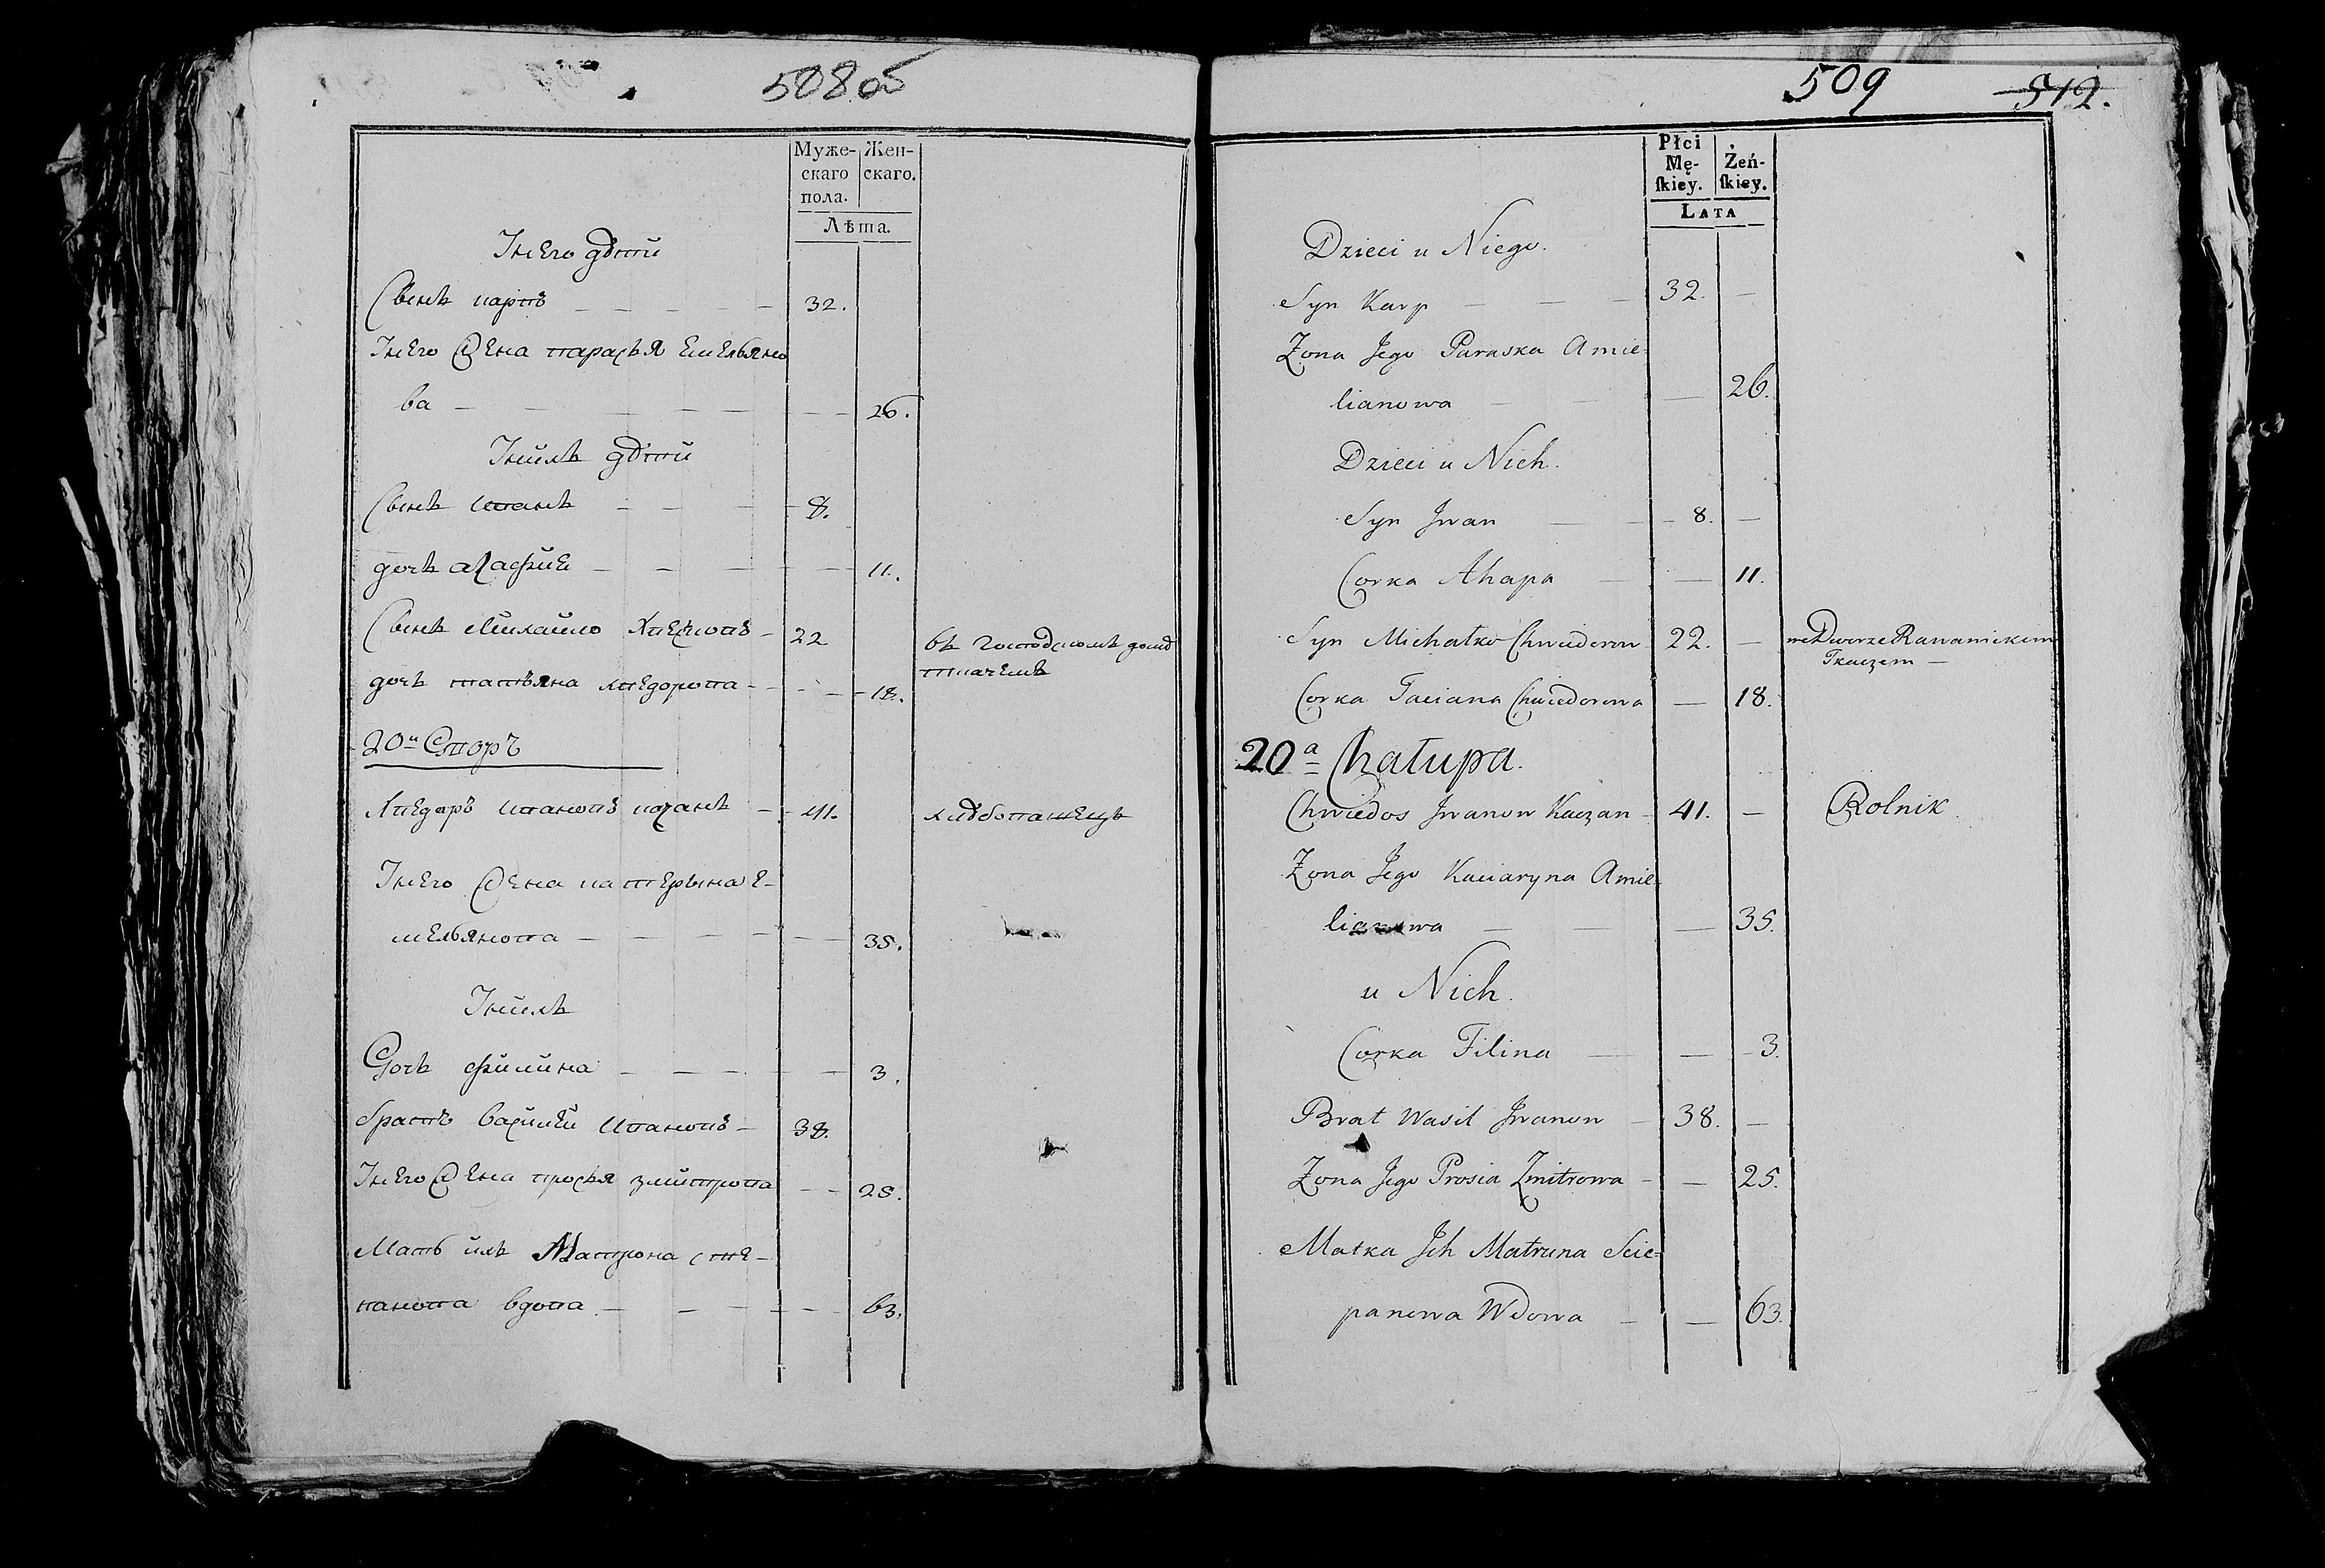 508 об
Муже-
скаго
пола.
Жен-
скаго.
Лѣта.
Унего дѣти
Сынъ карпъ 32.
Унего жена парасья Емельяно
ва 26.
Унихъ дѣти
Сынъ иванъ 8.
дочь агафия 11.
Сынъ михайло хведоровъ 22 въ господскомъ домѣ
ткачемъ
дочь татьяна хведорова 18.
20й Дворъ
хведоръ ивановъ качанъ 41. хлѣбопашецъ
Унего жена катерына е-
мельянова 35.
Унихъ
Дочь филина 3.
братъ василей ивановъ 38.
Унего жена просья змитрова 25.
Мать ихъ Матрона сте-
панова вдова 63.
509 512.
Płci
Mę-
skiey.
Żeń-
skiey.
Lata
Dzieci u Niego.
Syn Karp 32. —
Zona Jego Paraska Amie-
lianowa — 26.
Dzieci u Nich.
Syn Jwan 8. —
Corka Ahapa — 11.
Syn Michałko Chwiedorow 22. — we Dworze Rawanickim
Tkaczem —
Corka Taciana Chwiedorowa — 18.
20a Chałupa.
Chwiedos Jwanow Kaczan 41. — Rolnik.
Zona Jego Kaciaryna Amie-
lianowa — 35.
u Nich.
Corka Filina — 3.
Brat Wasil Jwanow 38. —
Zona Jego Prosia Zmitrowa — 25.
Matka Jch Matruna Scie-
panowa Wdowa — 63.